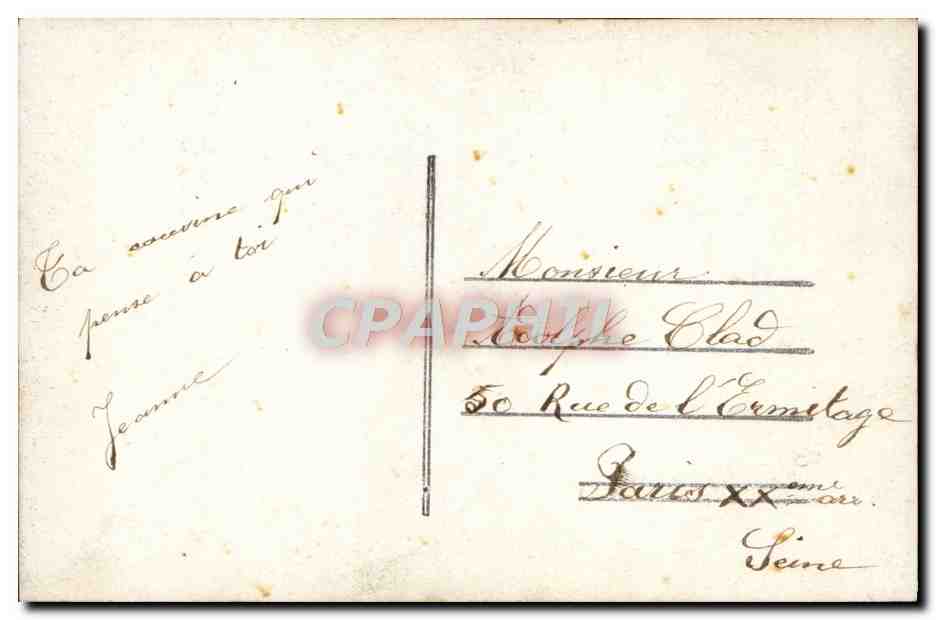 Ta cousine qui
pense à toi
Jeanne
Monsieur
Adolphe Clad
50 Rue de l'Ermitage
Paris XXeme arr.
Seine
CPAPHIL